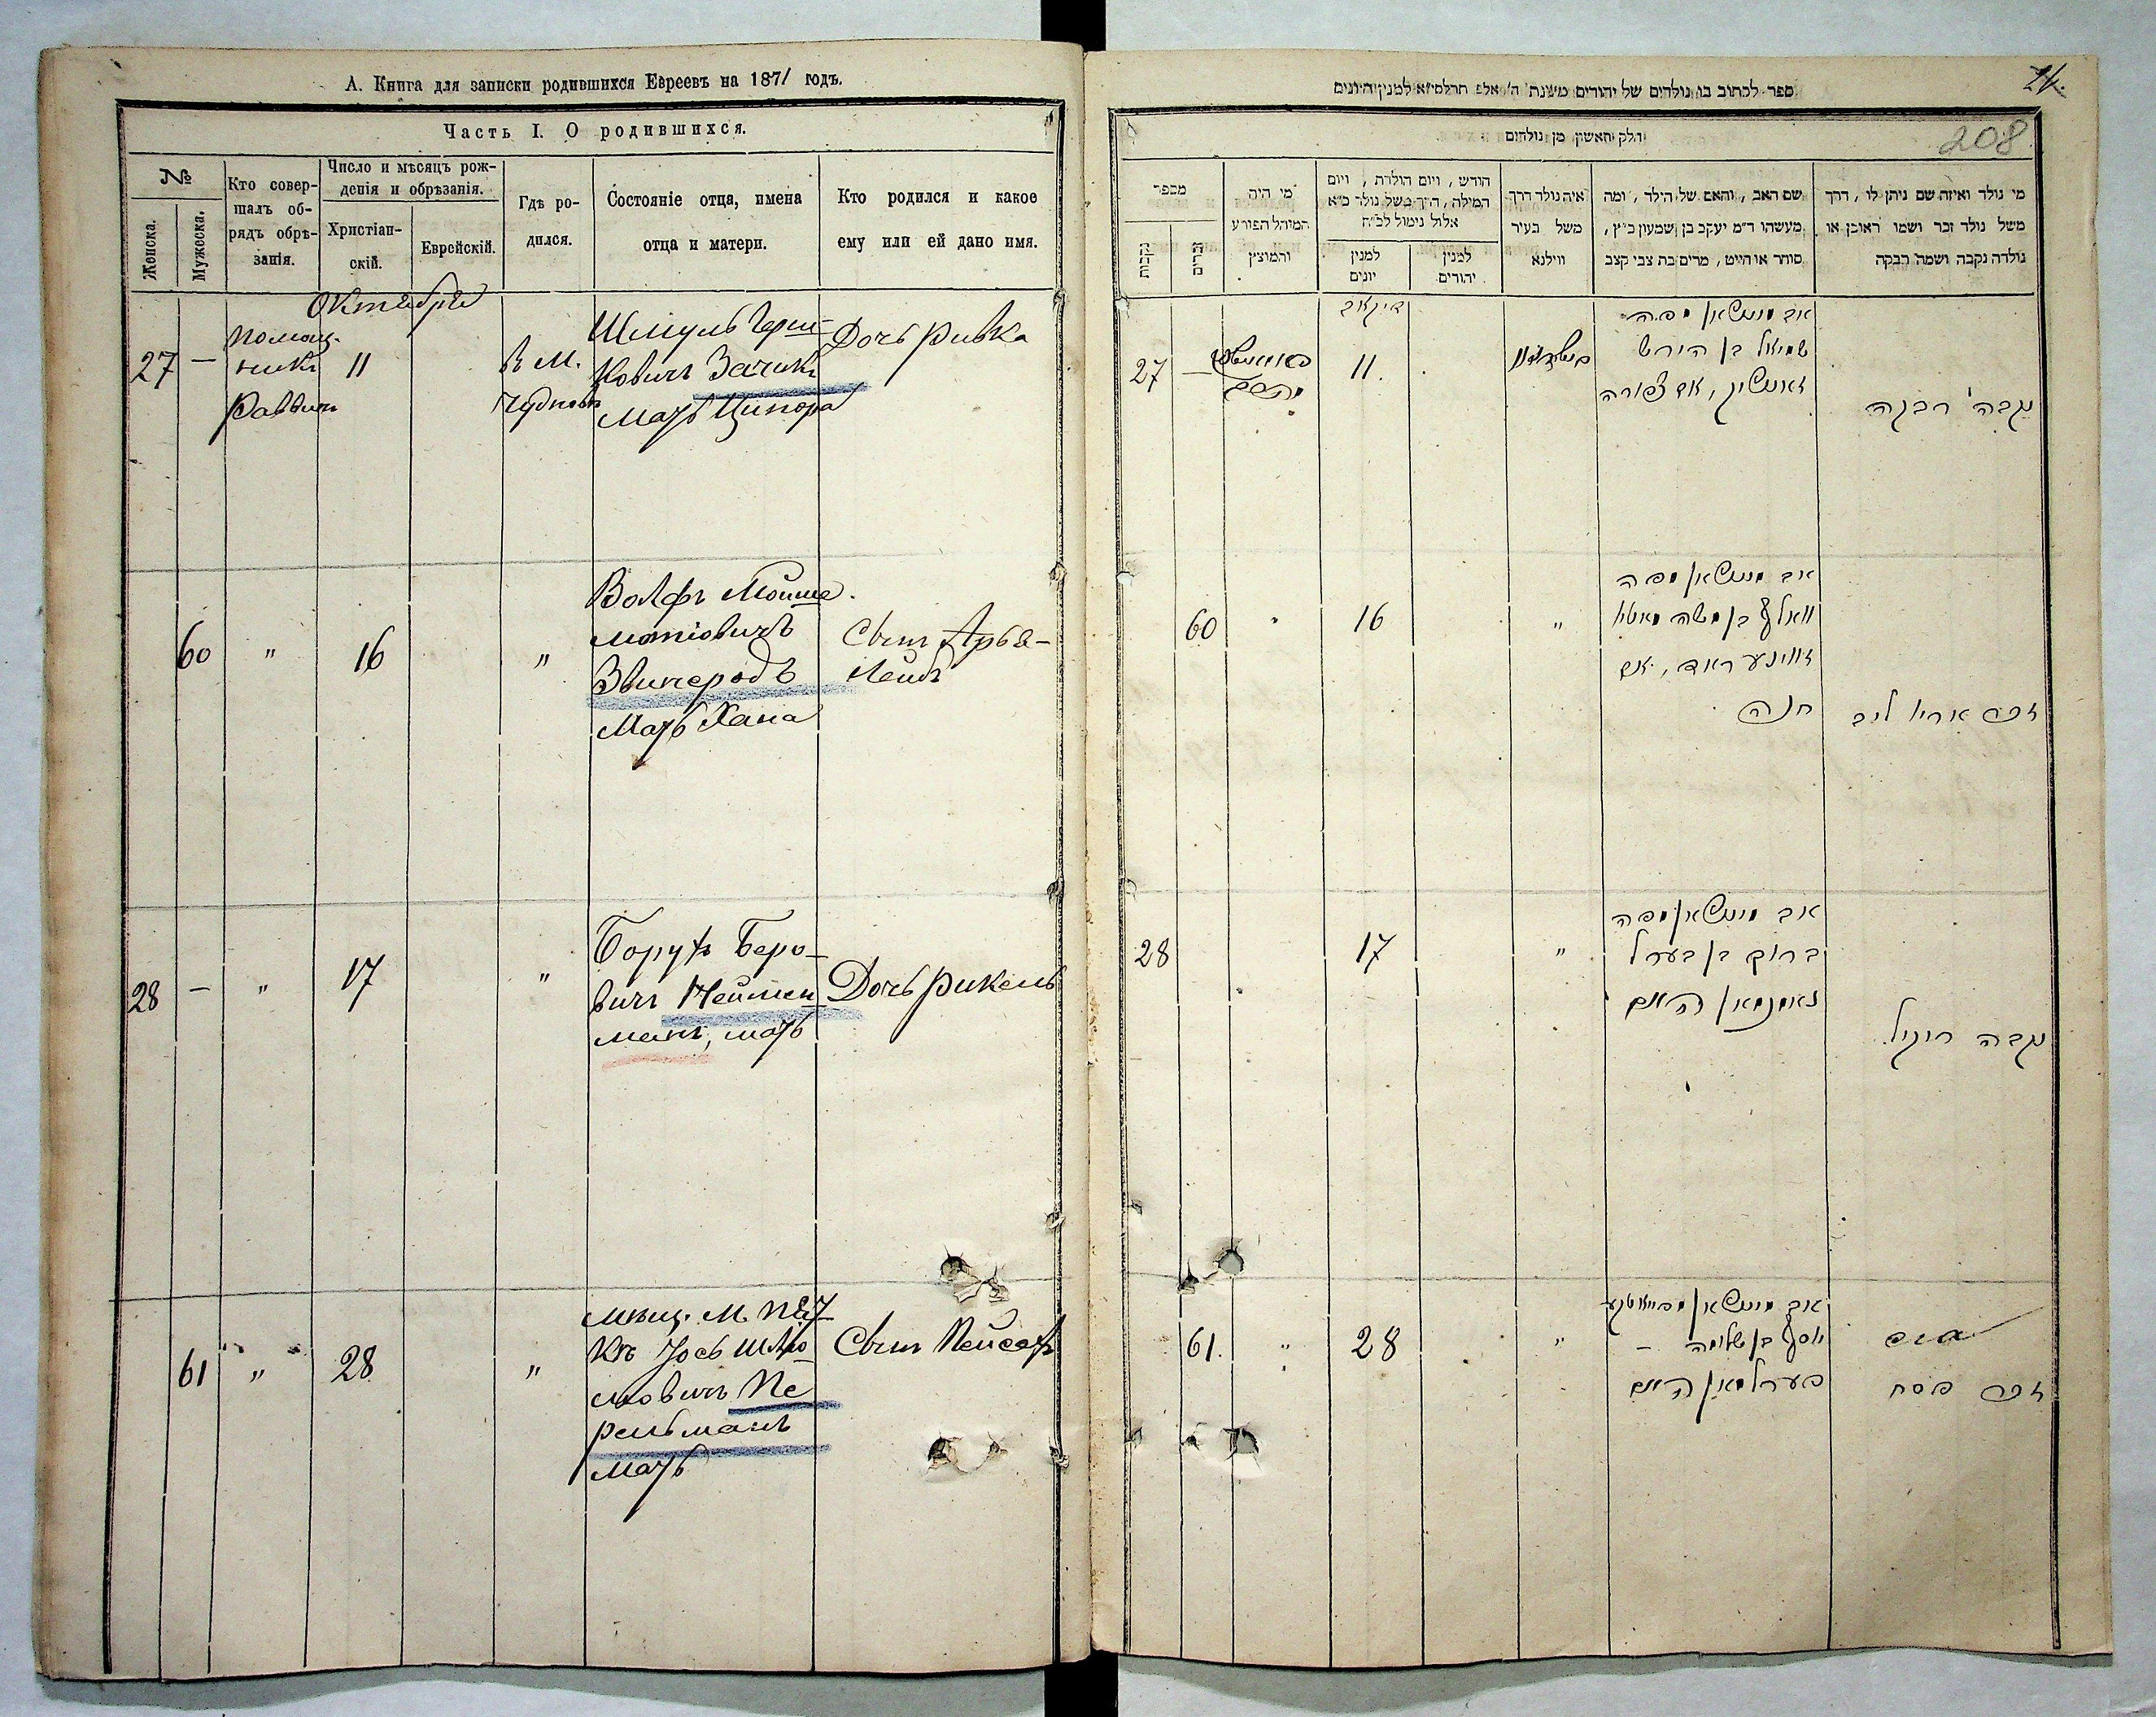 А. Книга для записки родившихся Евреевъ на 1871 годъ.
Часть I. О родившихся.
№
Женска.
Мужеска.
Кто совер-
шалъ об-
рядъ обрѣ-
занія.
Число и мѣсяцъ рож-
денія и обрѣзанія.
Христіан-
скій.
Еврейскій.
Гдѣ ро-
дился.
Состояніе отца, имена
отца и матери.
Кто родился и какое
ему или ей дано имя.
Октября
27 —
Помощ-
никъ
Раввин
11
В М.
Чудновъ
Шмуль Герш-
ковичъ Зачикъ
Мать Ципора
Дочь Ривка
60 " 16 "
Волфъ Мойше
мотіовичъ
Звинеродъ
Мать Хана
Сынъ Арье-
Лейбъ
28 — " 17 "
Борухъ Беро-
вичъ Неймен
манъ, мать
Дочь Рикель
61 " 28 "
мѣщ. М.
Іось Шлио
мовичъ Пе
рельманъ
Мать
Сынъ Пейсахъ
24.
208
ספר לכתוב בו נולדים של יהודים משנת ה' אלפ תרלסי״א למנין היונים
חלק ראשון מן נולדים
מספר
נקבות
זכרים
מי היה
המוהל הפורע
והמוצץ
חודש, ויום הולדת, ויום
המילה, דרך משל נולד כ״א
אלול נימול לכ״ח
למנין
יונים
למנין
יהודים
איה נולד דרך
משל בעיר
ווילנא
שם האב, והאם של הילד, ומה
מעשהו ד״מ יעקב בן שמעון כ״ץ,
סוחר או הייט, מרים בת צבי קצב
מי נולד ואיזה שם ניתן לו, דרך
משל נולד זכר ושמו ראובן או
נולדה נקבה ושמה רבקה
27 —
11.
שמואל בן הירש
נקבה רבקה
60 " 16 "
וואלף בן משה
חנה
זכר אריו ליב
28 17 "
ברוך בן בערל
נקבה ריקיל
61. " 28 "
יוסף בן שלומה
פערלמאן
זכר פסח